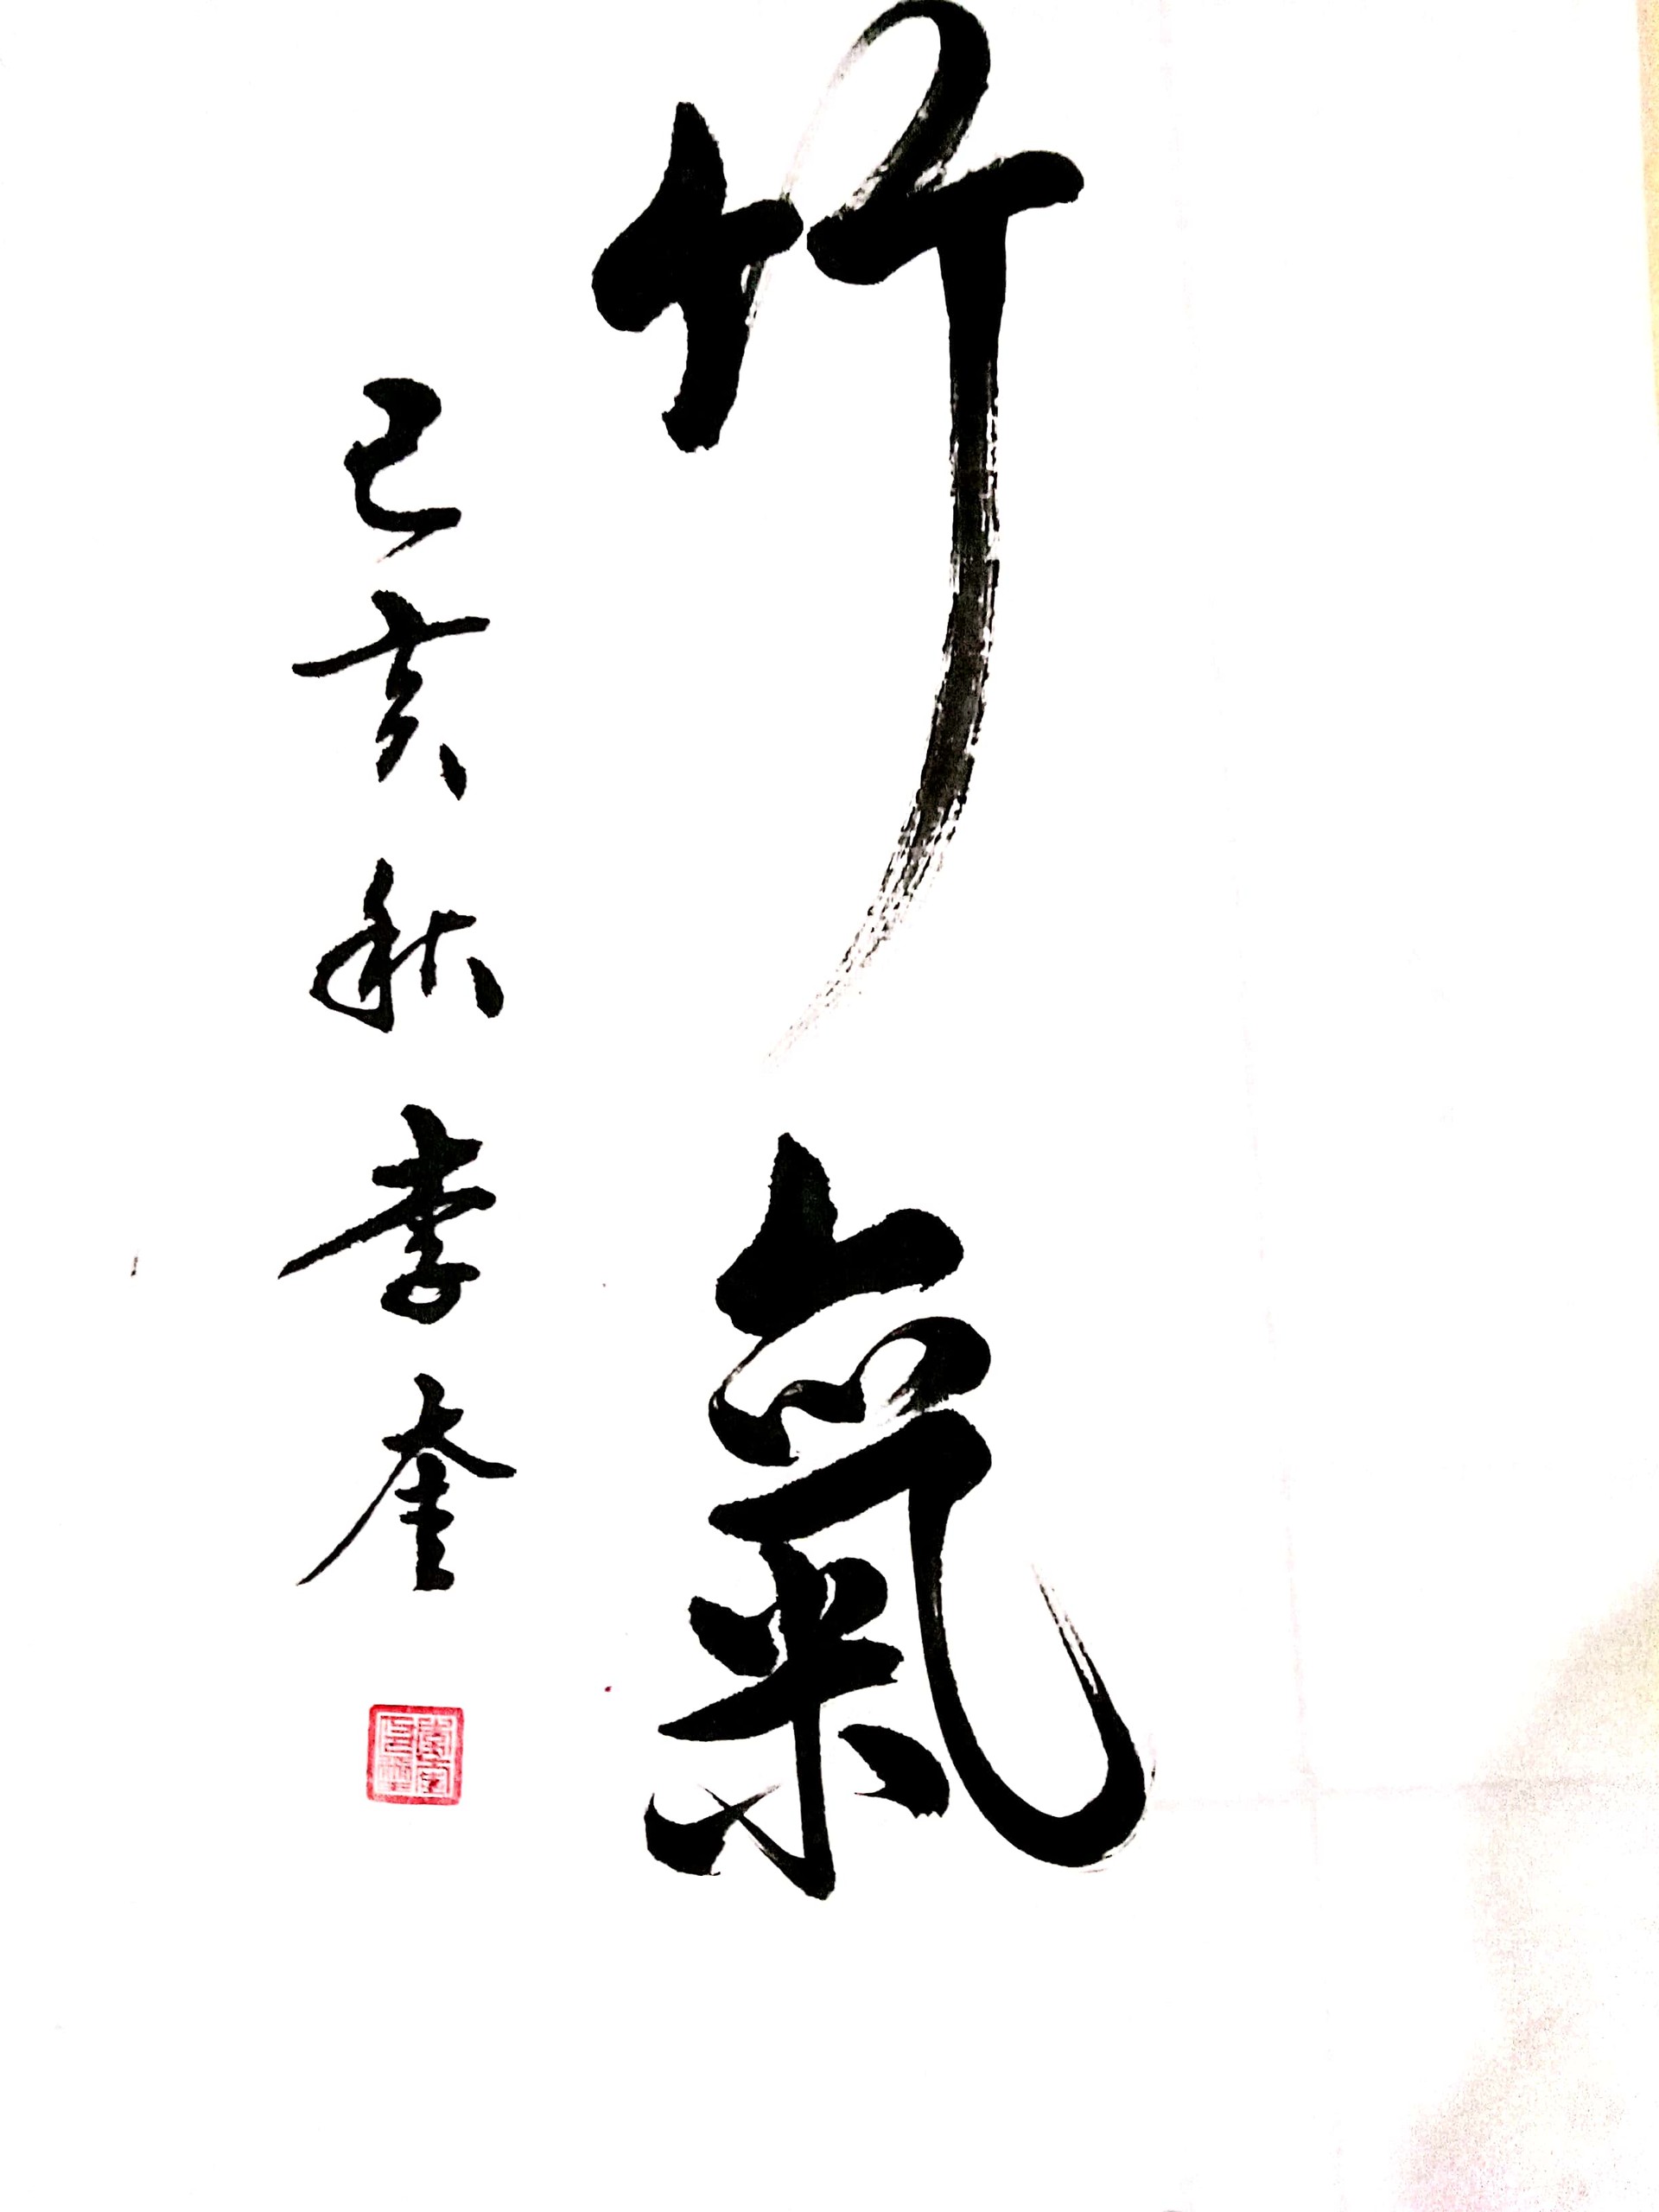 竹氣
己亥秋李奎